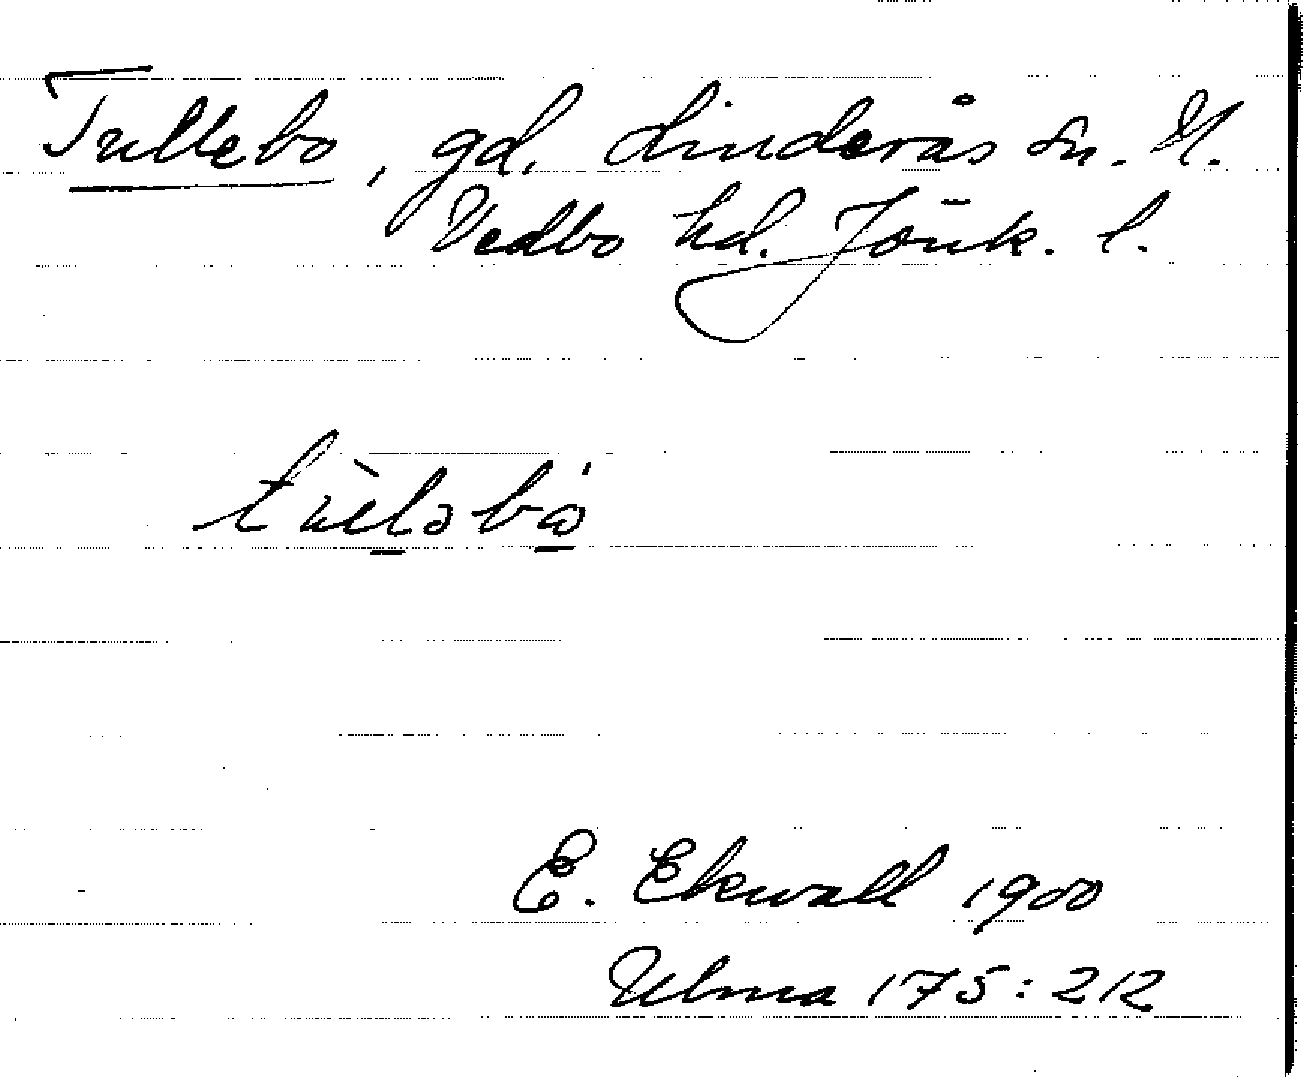 Tullebo, gd. Linderås sn. N.
Vedbo hd. Jönk. l.
E. Ekwall 1900
Ulma 175:212